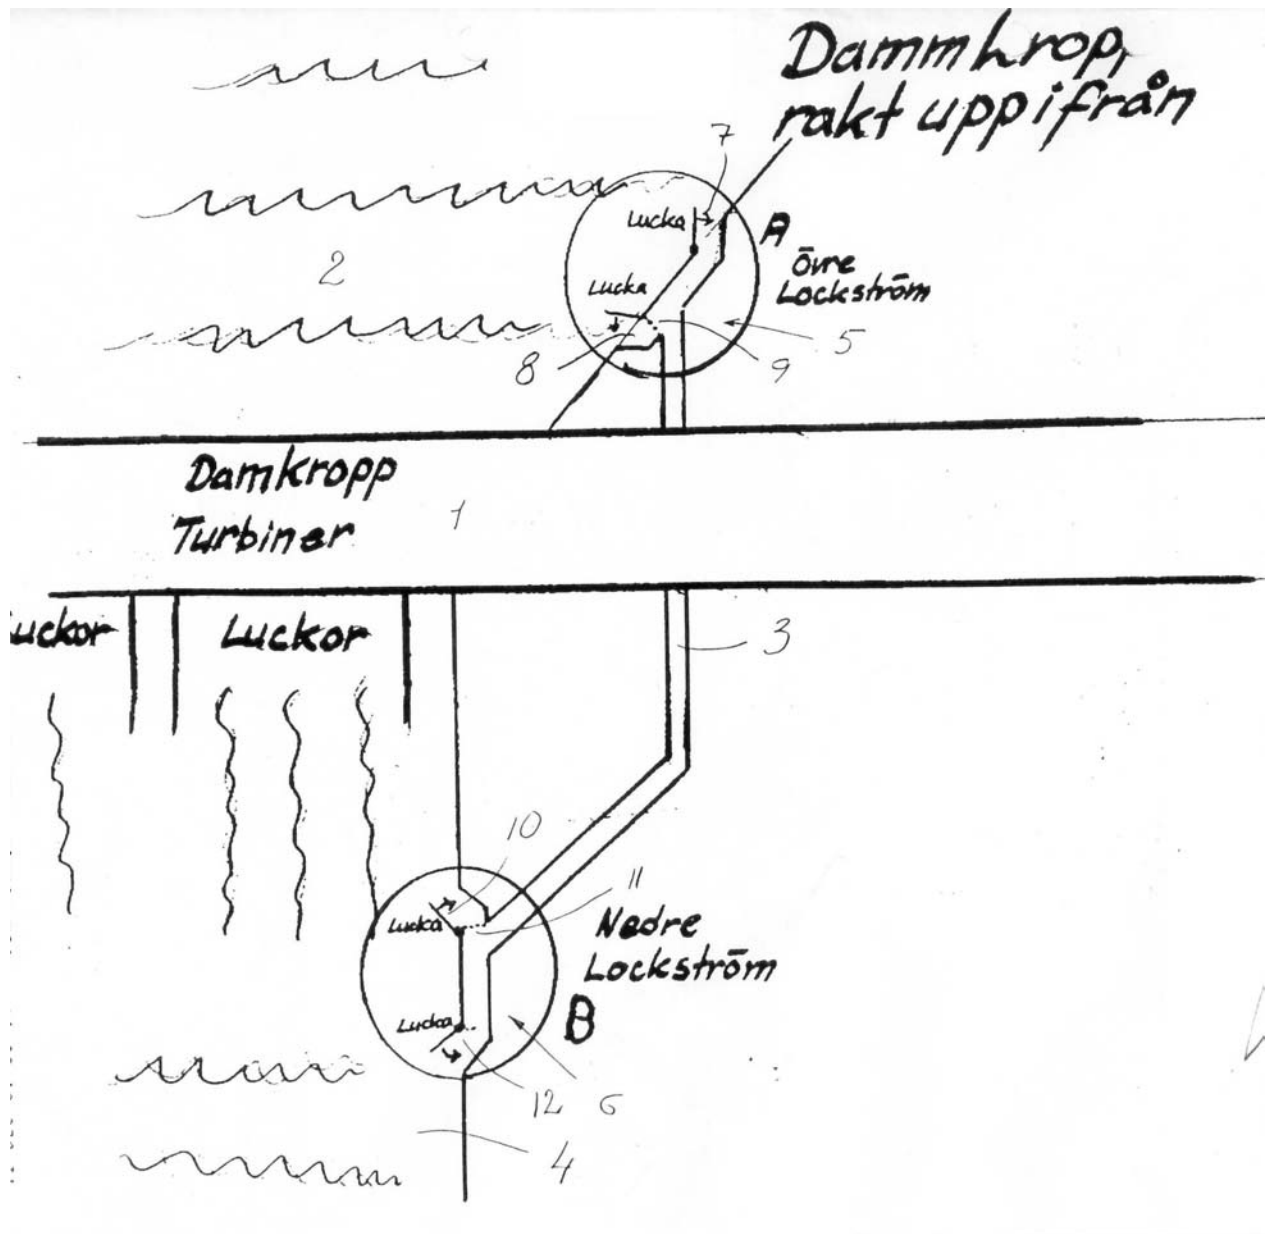 Dammkrop,
rakt uppifrån
7
Lucka
A
Övre
Lockström
2
Lucka
5
8
9
Damkropp
Turbiner
1
uckor
Luckor
3
10
11
Lucka
Nedre
Lockström
Lucka
B
12
6
4